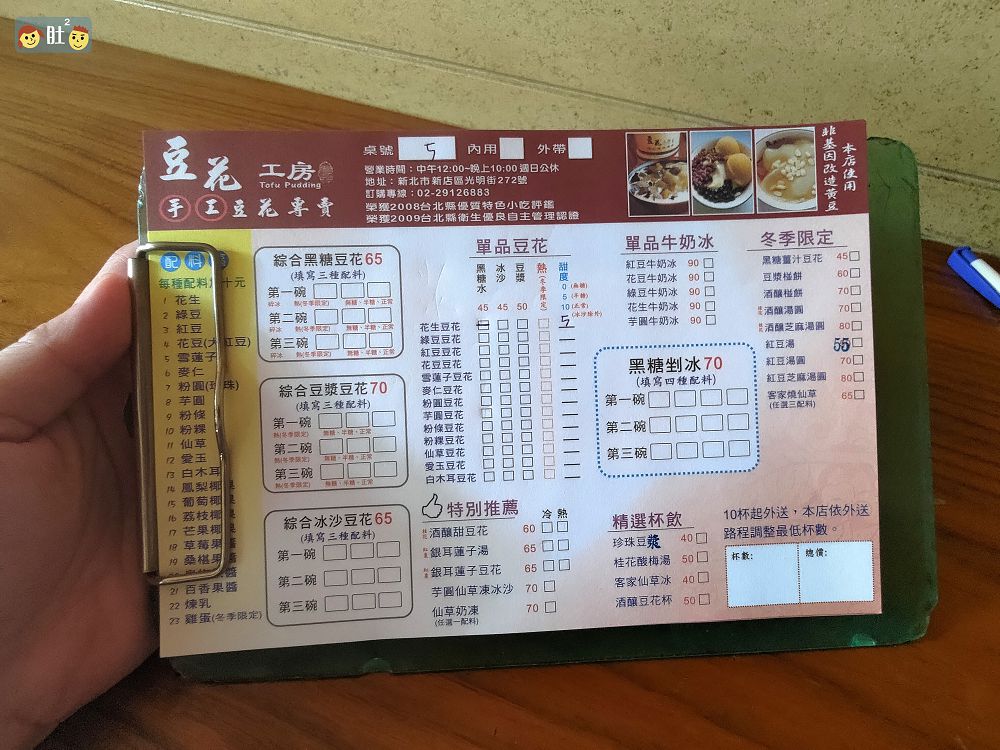 肚2
豆花工房
Tofu Pudding
手工豆花專賣
桌號 5 內用 外帶
營業時間：中午12:00~晚上10:00 週日公休
地址：新北市新店區光明街272號
訂購專線：02-29126883
榮獲2008台北縣優質特色小吃評鑑
榮獲2009台北縣衛生優良自主管理認證
本店使用
非基因改造黃豆
配料
每種配料 十元
1 花生
2 綠豆
3 紅豆
4 花豆(大紅豆)
5 雪蓮子
6 麥仁
7 粉圓(珍珠)
8 芋圓
9 粉條
10 粉粿
11 仙草
12 愛玉
13 白木耳
14 鳳梨椰果
15 葡萄椰果
16 荔枝椰果
17 芒果椰果
18 草莓果醬
19 桑椹果醬
果醬
21 百香果醬
22 煉乳
23 雞蛋(冬季限定)
綜合黑糖豆花65
(填寫三種配料)
第一碗
碎冰 熱(冬季限定) 無糖、半糖、正常
第二碗
碎冰 熱(冬季限定) 無糖、半糖、正常
第三碗
碎冰 熱(冬季限定) 無糖、半糖、正常
綜合豆漿豆花70
(填寫三種配料)
第一碗
熱(冬季限定) 無糖、半糖、正常
第二碗
熱(冬季限定) 無糖、半糖、正常
第三碗
熱(冬季限定) 無糖、半糖、正常
綜合冰沙豆花65
(填寫三種配料)
第一碗
第二碗
第三碗
單品豆花
黑糖水 冰沙 豆漿 熱(冬季限定) 甜度
0 (無糖)
5 (半糖)
10 (正常)
(冰沙除外)
45 45 50
花生豆花 5
綠豆豆花
紅豆豆花
花豆豆花
雪蓮子豆花
麥仁豆花
粉圓豆花
芋圓豆花
粉條豆花
粉粿豆花
仙草豆花
愛玉豆花
白木耳豆花
特別推薦 冷 熱
酒釀甜豆花 60
銀耳蓮子湯 65
銀耳蓮子豆花 65
芋圓仙草凍冰沙 70
仙草奶凍 70
(任選一配料)
單品牛奶冰
紅豆牛奶冰 90
花豆牛奶冰 90
綠豆牛奶冰 90
花生牛奶冰 90
芋圓牛奶冰 90
黑糖剉冰70
(填寫四種配料)
第一碗
第二碗
第三碗
精選杯飲
珍珠豆漿 40
桂花酸梅湯 50
客家仙草冰 40
酒釀豆花杯 50
冬季限定
黑糖薑汁豆花 45
豆漿槌餅 60
酒釀槌餅 70
酒釀湯圓 70
酒釀芝麻湯圓 80
紅豆湯 55
紅豆湯圓 70
紅豆芝麻湯圓 80
客家燒仙草 65
(任選三配料)
10杯起外送，本店依外送
路程調整最低杯數。
杯數： 總價：